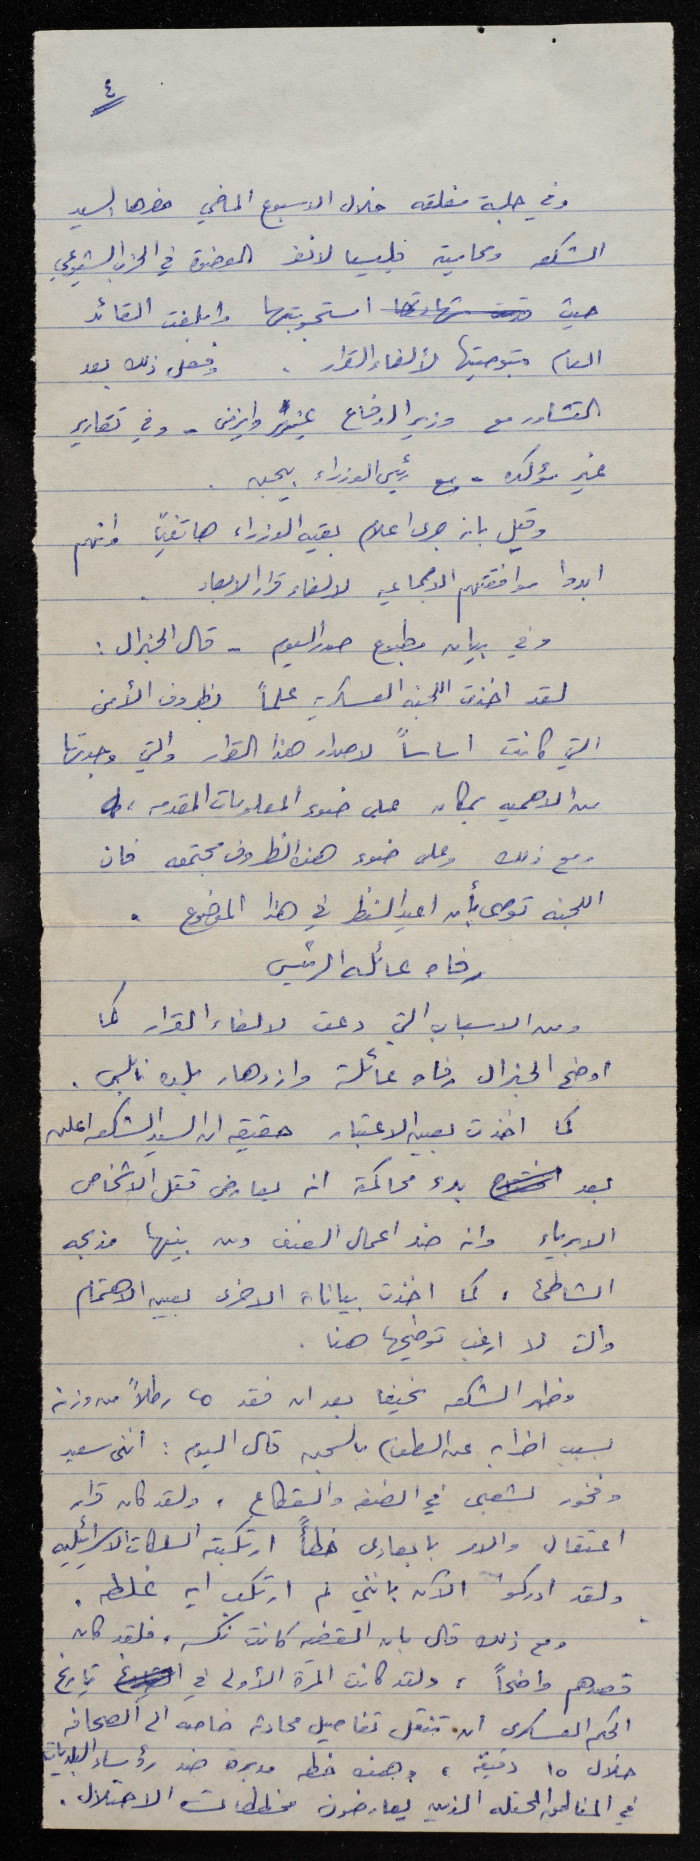 ٤
وفي جلسة مغلقه خلال الاسبوع الماضي حضرها السيد
الشكعه ومحاميته فيليسيا لانغر العضوة في الحزب الشيوعي
حيث استجوبتها وابلغت القائد
العام بتوصيتها لألغاء القرار . وفعل ذلك بعد
التشاور مع وزير الدفاع عيزر وايزمن - وفي تقارير
غير مؤكده - مع رئيس الوزراء بيجن .
وقيل بانه جرى اعلام بقيه الوزراء هاتفيًا وانهم
ابدوا موافقتهم الاجماعيه لالغاء قرار الابعاد .
وفي بيان مطبوع صدر اليوم - قال الجنرال :
لقد اخذت اللجنه العسكريه علماً بظروف الأمن
التي كانت اساساً لاصدار هذا القرار والتي وجدتها
من الاهميه بمكان على ضوء المعلومات المقدمه ،
ومع ذلك وعلى ضوء هذه الظروف مجتمعه فان
اللجنه توصي بأن اعيد النظر في هذا الموضوع .
رفاه عائله الرئيس
ومن الاسباب التي دعت لالغاء القرار كما
اوضح الجنرال رفاه عائلته وازدهار بلده نابلس .
كما اخذت بعين الاعتبار حقيقه ان السيد الشكعه اعلن
بعد بدء محاكمته انه يعارض قتل الاشخاص
الابرياء وانه ضد اعمال العنف ومن بينها مذبحه
الشاطئ ، كما اخذت بياناته الاخرى بعين الاهتمام
والتي لا ارغب توضيحها هنا .
وظهر الشكعه نحيفا بعد ان فقد ٢٥ رطلاً من وزنه
بسبب اضرابه عن الطعام بالسجن قال اليوم : انني سعيد
وفخور لشعبي في الضفه والقطاع ، ولقد كان قرار
اعتقالي والامر بابعادي خطأً ارتكبته السلطات الاسرائيليه
ولقد ادركوا الآن بانني لم ارتكب ايه غلطه .
ومع ذلك قال بان القضيه كانت نكسه ، فلقد كان
قصدهم واضحاً ، ولقد كانت المرة الأولى في تاريخ
الحكم العسكري ان تنتقل تفاصيل محادثه خاصه الى الصحافه
خلال ١٥ دقيقه ، وهذه خطه مدبرة ضد رؤساء البلديات
في المناطق المحتله الذين يعارضون مخططات الاحتلال .